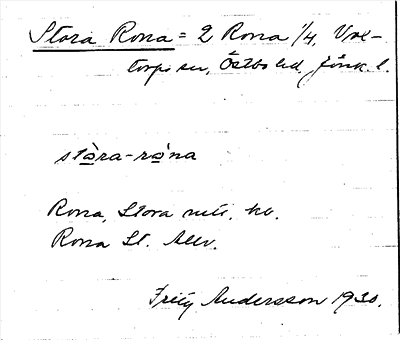 Stora Rona = 2 Rona 1/4, Vox-
torps sn, Östbo hd, Jönk. l.
stò̱ra-rò̱na
Rona, Stora
Rona St.
Andersson 1930.